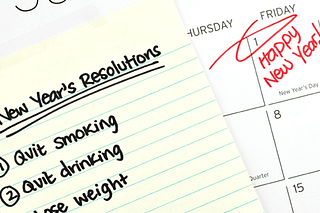 New Year's Resolutions
1 Quit smoking
2 Quit drinking
lose weight
THURSDAY
FRIDAY
1
Happy
New Year!!
New Year's Day
8
Quarter
15